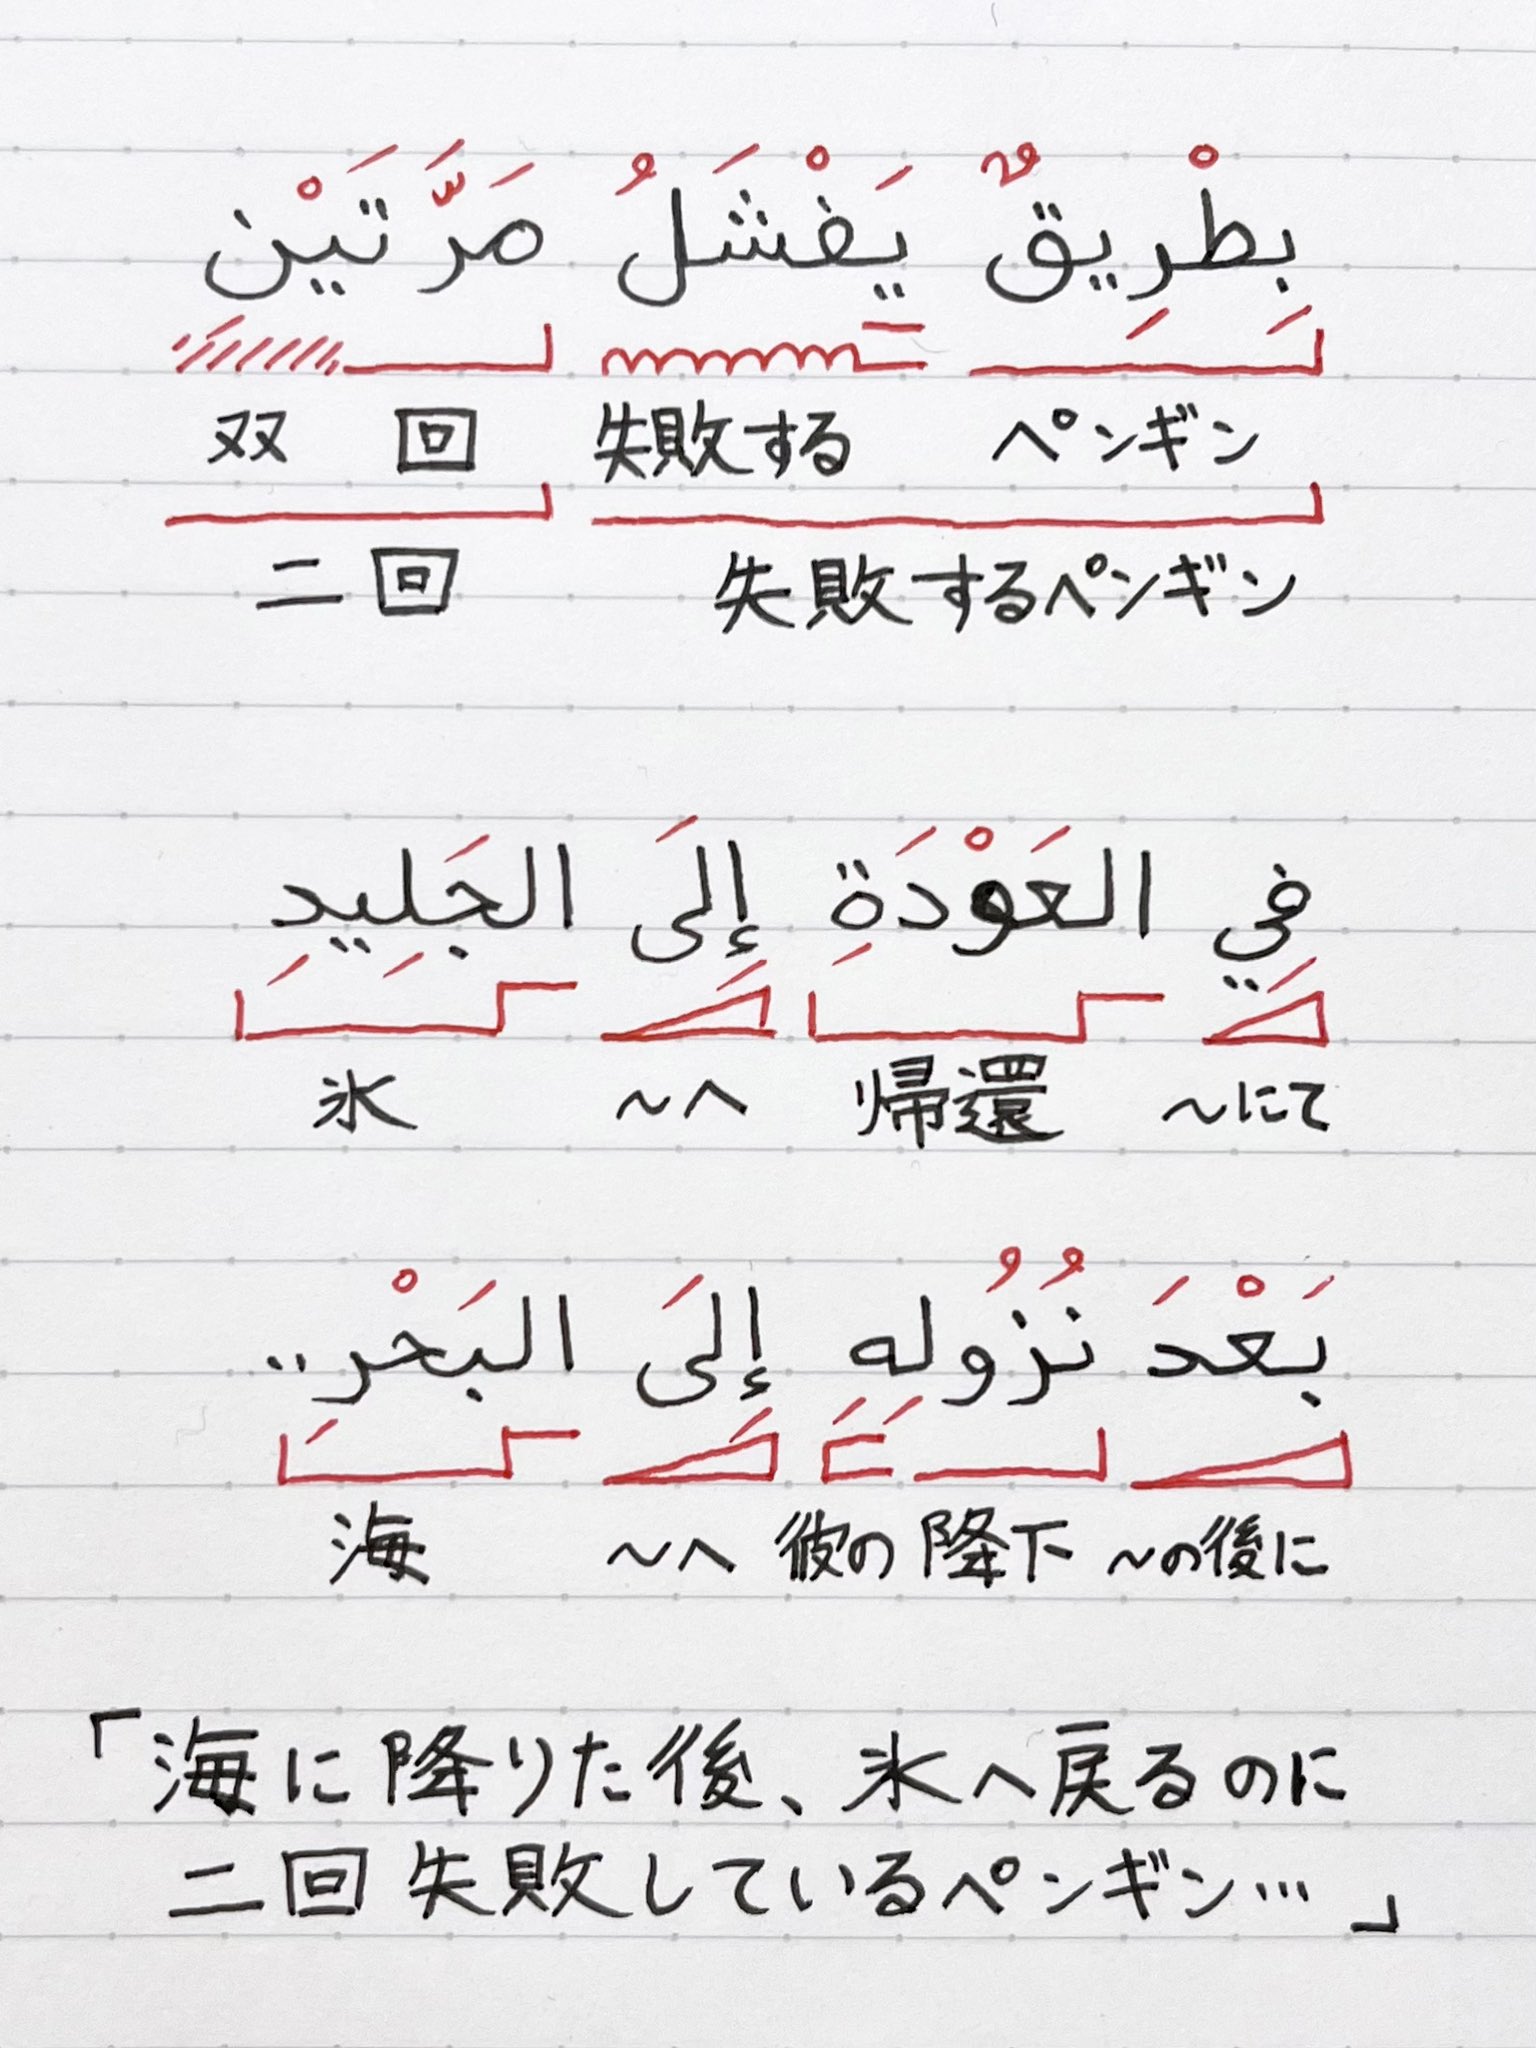 بِطْرِيقٌ يَفْشَلُ مَرَّتَيْنِ
双 回 失敗する ペンギン
二回 失敗するペンギン
فِي العَوْدَةِ إِلَى الجَلِيدِ
氷 〜へ 帰還 〜にて
بَعْدَ نُزُولِهِ إِلَى البَحْرِ..
海 〜へ 彼の 降下 〜の後に
「海に降りた後、氷へ戻るのに
二回失敗しているペンギン…」